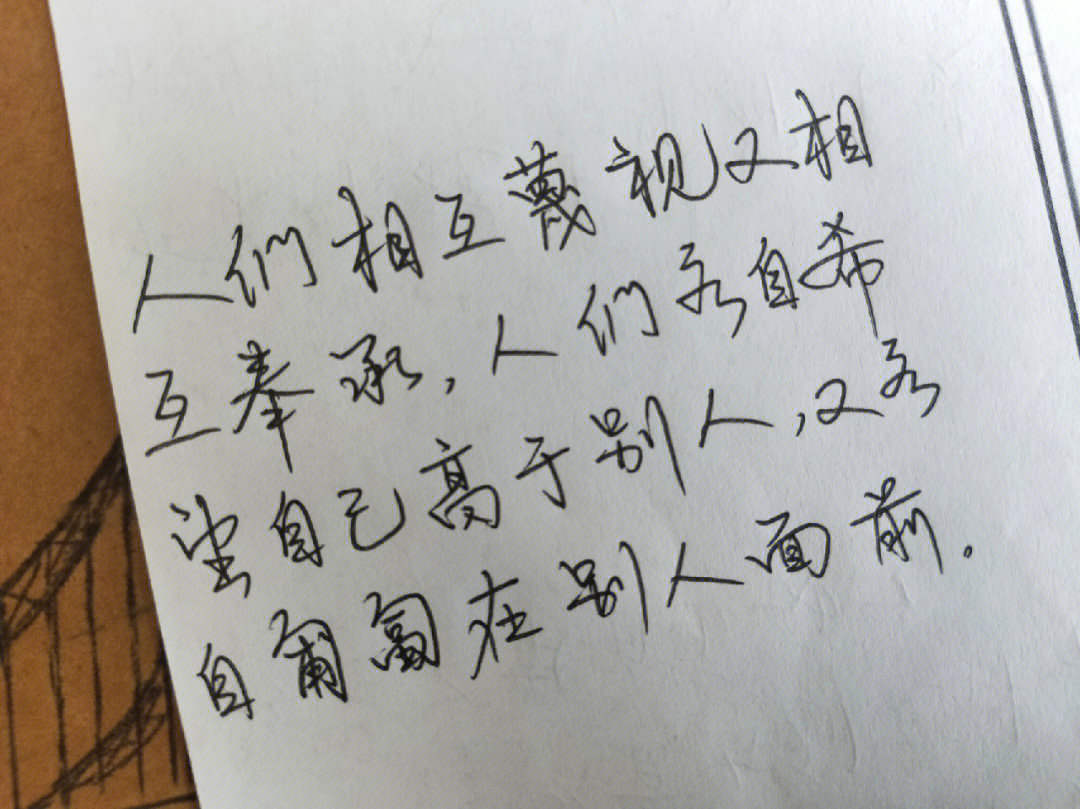 人们相互蔑视又相
互奉承,人们各自希
望自己高于别人,又各
自匍匐在别人面前。